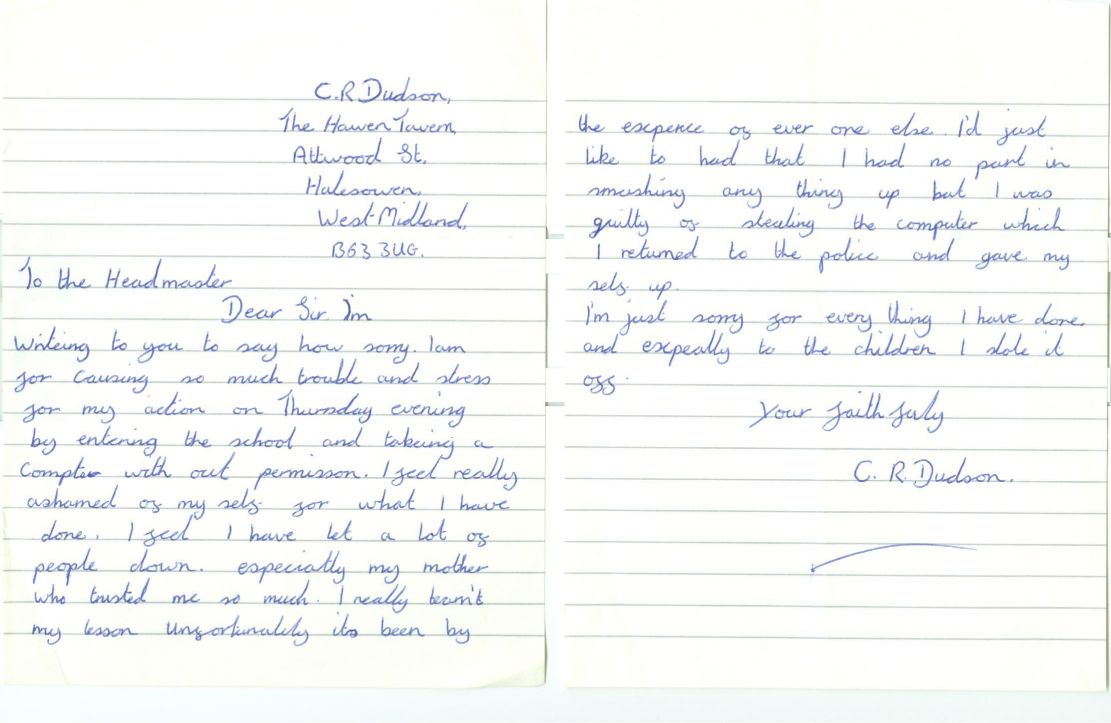 C.R Dudson,
The Hawen Tavern,
Attwood St.
Halesowen,
West-Midland,
B63 3UG.
To the Headmaster
Dear Sir. I'm
writeing to you to say how sorry. I am
for causing so much trouble and stress
for my action on Thursday evening
by entering the school and takeing a
Compter with out permisson. I feel really
ashamed of my self for what I have
done. I feel I have let a lot of
people down. especially my mother
who trusted me so much. I really learn't
my lesson unfortunalely its been by
the excpence of ever one else. I'd just
like to had that I had no part in
smashing any thing up but I was
guilty of stealing the computer which
I returned to the police and gave my
self up.
I'm just sorry for every thing I have done.
and excpeally to the children I stole it
off.
Your faith fully
C. R. Dudson.